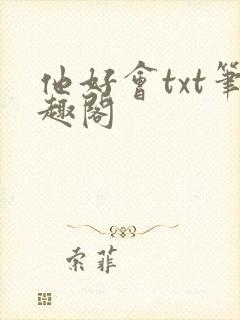 他好會txt筆
趣閣
索菲